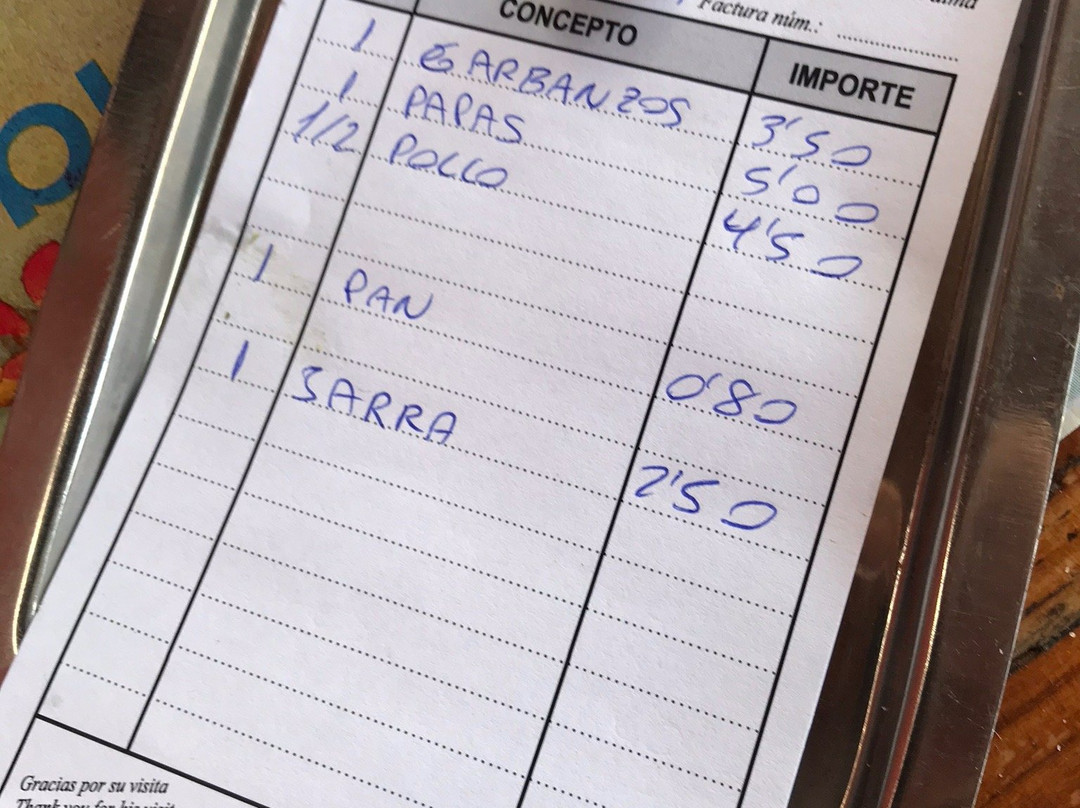 Factura núm.:
CONCEPTO IMPORTE
1 GARBANZOS 3'50
1 PAPAS 5'00
1/2 POLLO 4'50
1 PAN 0'80
1 JARRA 2'50
Gracias por su visita
Thank you for his visit